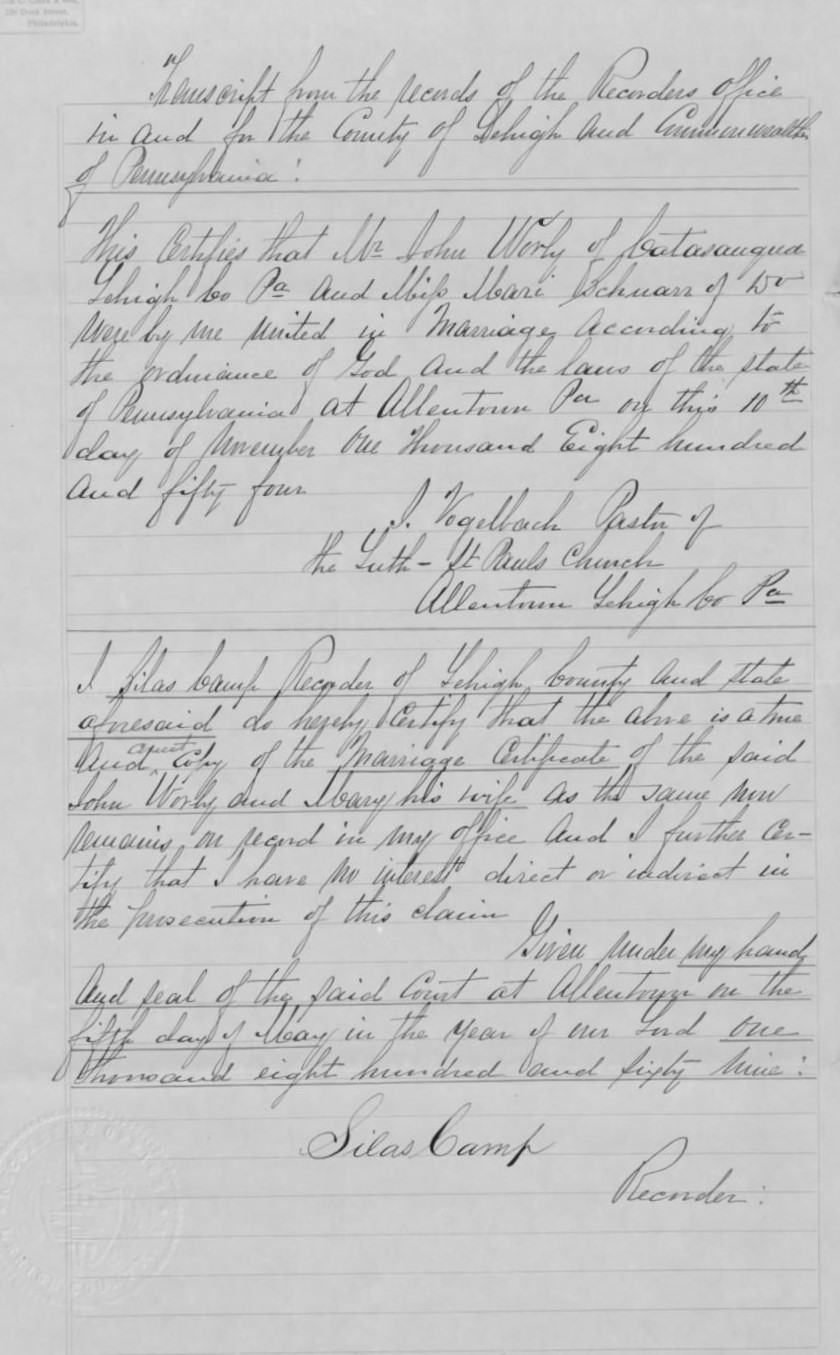 Transcript from the records of the Recorders office
in and for the County of Lehigh and Commonwealth
of Pennsylvania:
This Certifies that Mr John Worly of Catasauqua
Lehigh Co Pa and Miss Mari Schnarr of Do
were by me united in Marriage according to
the ordinance of God and the laws of the state
of Pennsylvania at Allentown Pa on this 10th
day of November One Thousand Eight hundred
and fifty four
J. Vogelbach Pastor of
the Luth - St Pauls Church
Allentown Lehigh Co Pa
I Silas Camp Recorder of Lehigh County and state
aforesaid do hereby Certify that the above is a true
and Copy of the Marriage Certificate of the said
John Worly and Mary his wife as the same now
remains on record in my office and I further Cer-
tify that I have no interest direct or indirect in
the prosecution of this claim
Given under my hand
And seal of the said Court at Allentown on the
fifth day of May in the year of our Lord One
Thousand eight hundred and sixty nine:
Silas Camp
Recorder: